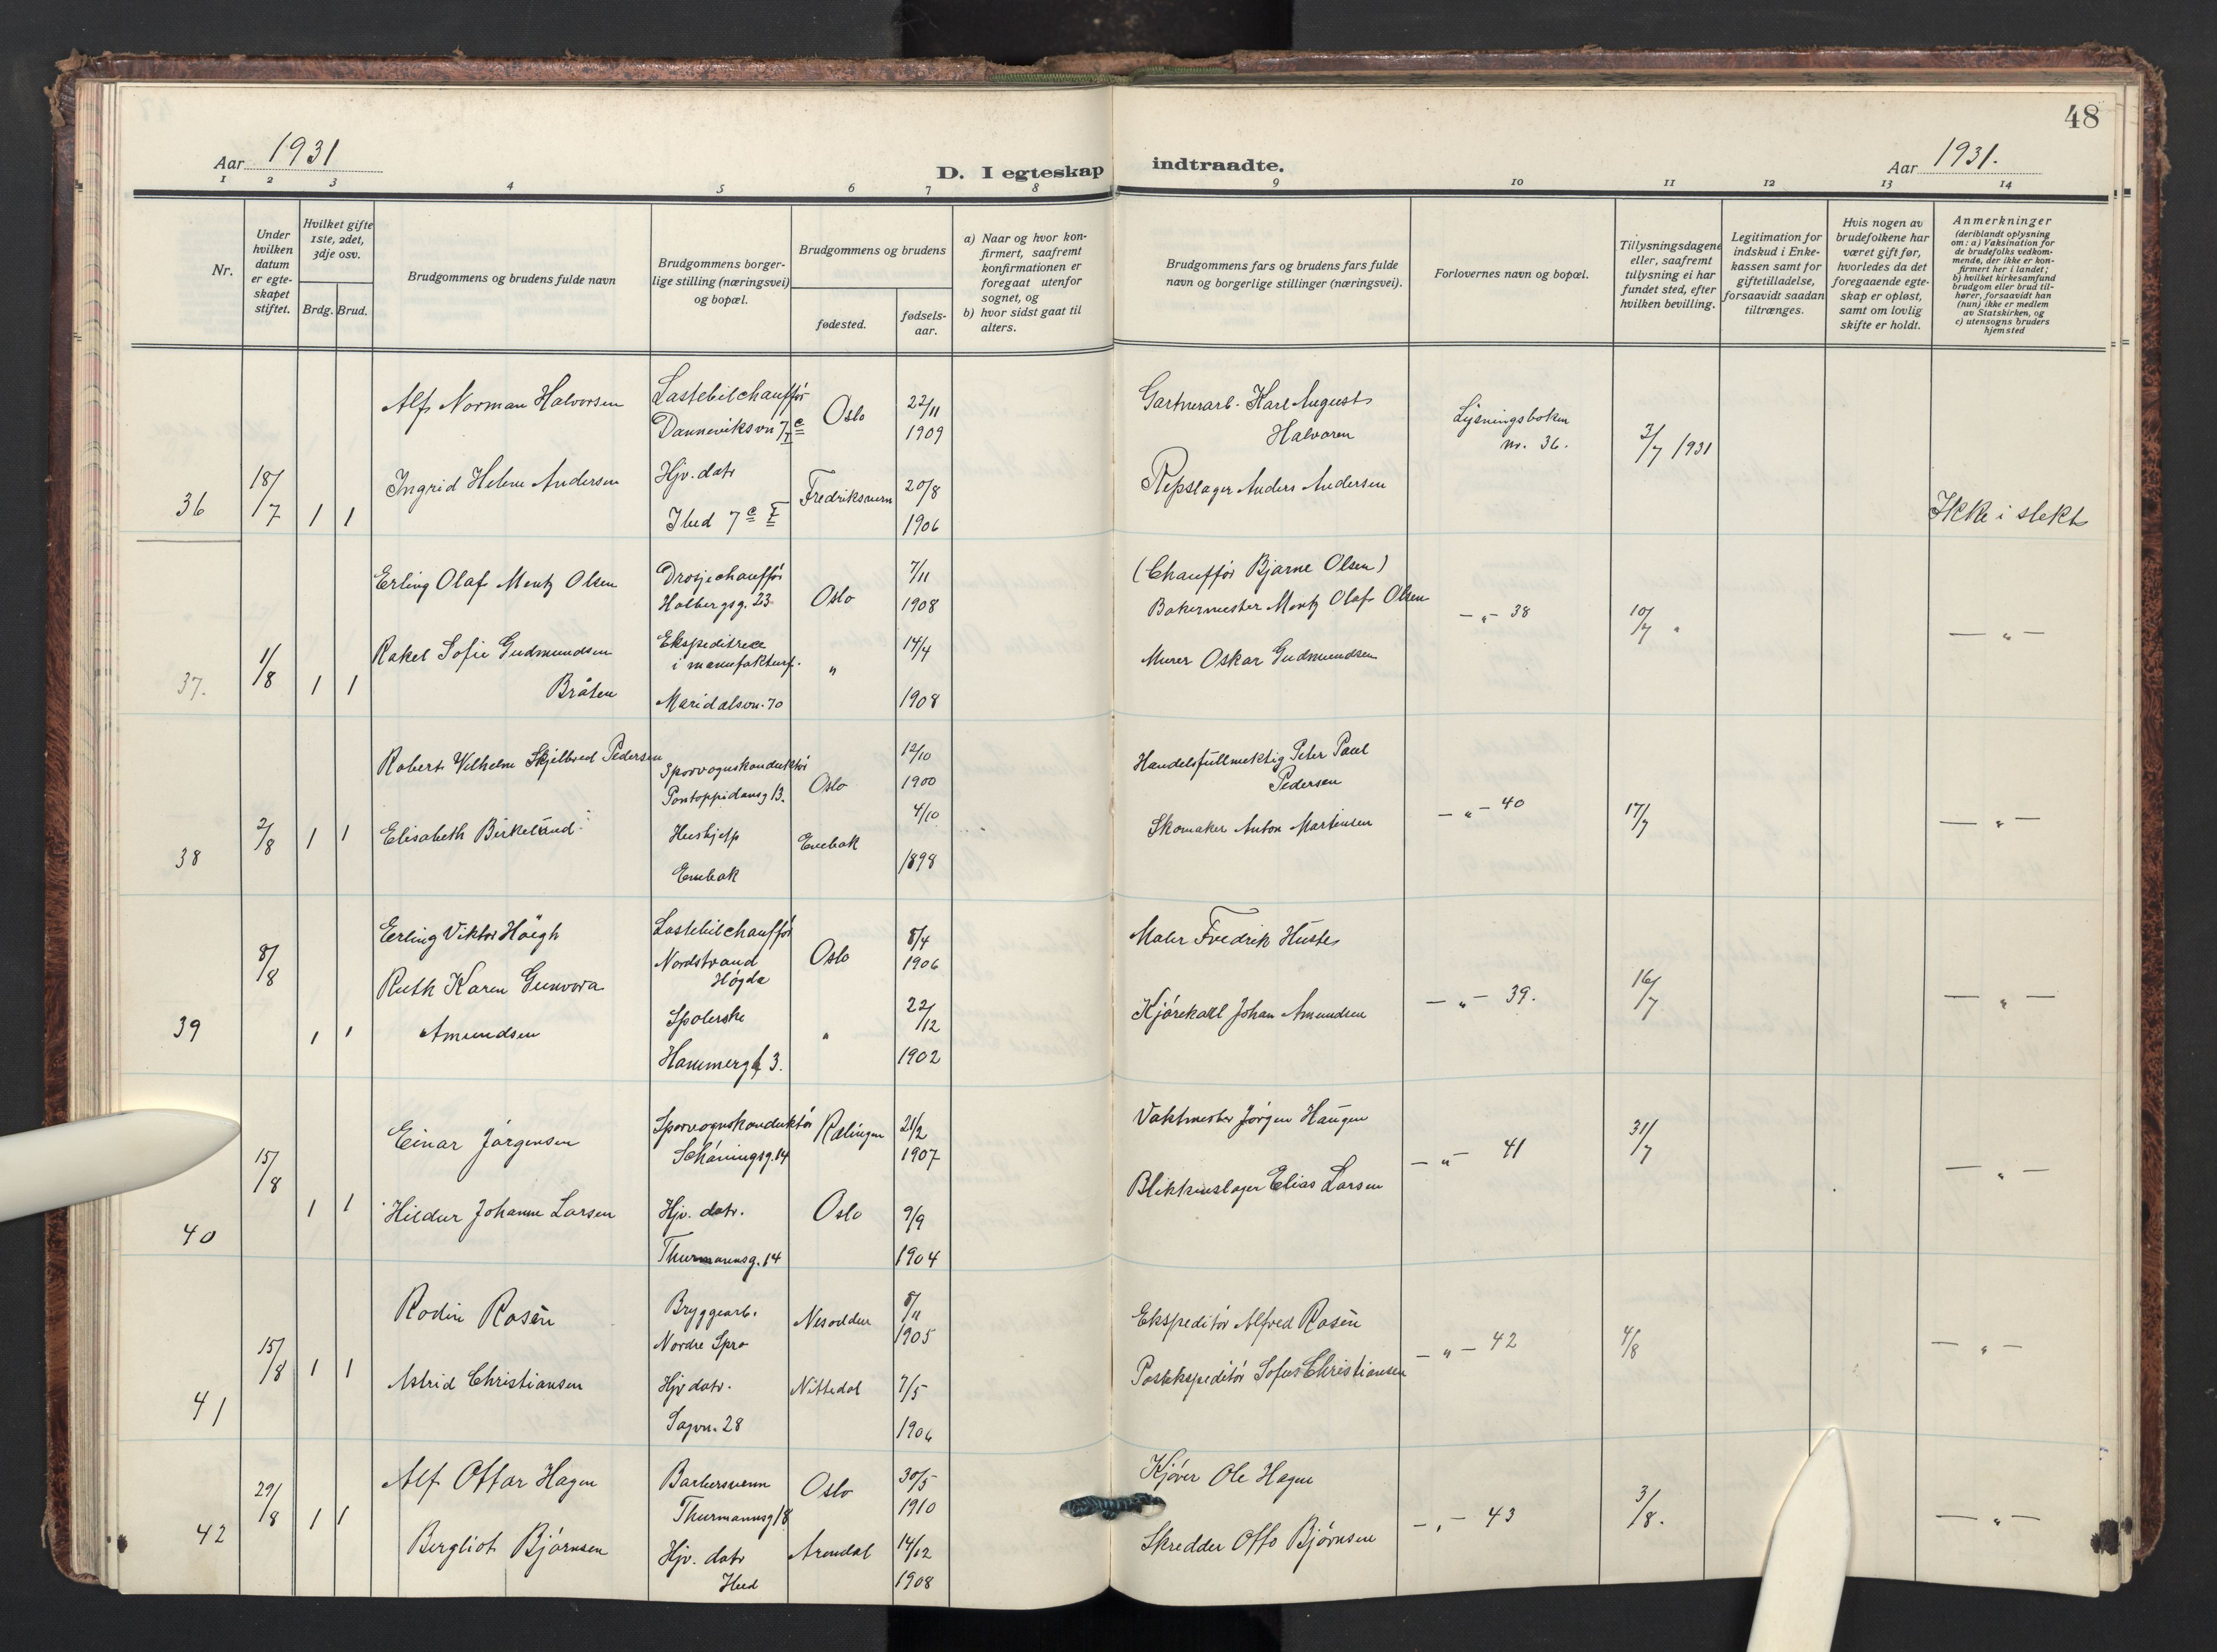 48
Aar 1931
D. I egteskap indtraadte.
Aar 1931.
1 2 3 4 5 6 7 8 9 10 11 12 13 14
Nr.
Under hvilken datum er egteskapet stiftet.
Hvilket gifte 1ste, 2det, 3dje osv.
Brdg. Brud.
Brudgommens og brudens fulde navn
Brudgommens borgerlige stilling (næringsvei) og bopæl.
Brudgommens og brudens
fødested.
fødselsaar.
a) Naar og hvor konfirmert, saafremt konfirmationen er foregaat utenfor sognet, og
b) hvor sidst gaat til alters.
Brudgommens fars og brudens fars fulde navn og borgerlige stillinger (næringsvei).
Forlovernes navn og bopæl.
Tillysningsdagene eller, saafremt tillysning ei har fundet sted, efter hvilken bevilling.
Legitimation for indskud i Enkekassen samt for giftetilladelse, forsaavidt saadan tiltrænges.
Hvis nogen av brudefolkene har været gift før, hvorledes da det foregaaende egteskap er opløst, samt om lovlig skifte er holdt.
Anmerkninger
(deriblandt oplysning om: a) Vaksination for de brudefolks vedkommende, der ikke er konfirmert her i landet;
b) hvilket kirkesamfund brudgom eller brud tilhører, forsaavidt han (hun) ikke er medlem av Statskirken, og
c) utensogns bruders hjemsted
36 18/7 1 1
Alf Norman Halvorsen
Lastebilchauffør
Danneviksvn 7 c I
Oslo
22/11
1909
Gartnerarb. Karl August
Halvorsen
Lysningsboken
nr. 36.
3/7 1931
Ingrid Helene Andersen
Hjv. datr
Ibid 7 c I
Fredriksvern
20/8
1906
Repslager Anders Andersen
Ikke i slekt
37. 1/8 1 1
Erling Olaf Mentz Olsen
Drosjechauffør
Holbergsg. 23
Oslo
7/11
1908
(Chauffør Bjarne Olsen)
Bakermester Mentz Olaf Olsen
— " — 38
10/7 "
Rakel Sofie Gudmundsen
Bråten
Ekspeditrice
i manufakturf.
Maridalsvn. 70
"
14/4
1908
Murer Oskar Gudmundsen
— " —
38 2/8 1 1
Robert Vilhelm Skjelbred Pedersen
Sporvognskonduktør
Pontoppidansg 13.
Oslo
12/10
1900
Handelsfullmektig Peter Paul
Pedersen
— " — 40
17/7
Elisabeth Birkelund
Hushjelp
Enebak
Enebak
4/10
1898
Skomaker Anton Martinsen
— " —
39 8/8 1 1
Erling Viktor Höegh
Lastebilchauffør
Nordstrand
Høgda
Oslo
8/4
1906
Maler Fredrik Huste
— " — 39.
16/7
Ruth Karen Gunvora
Amundsen
Spolerske
Hammergt 3.
"
22/12
1902
Kjørekarl Johan Amundsen
— " —
40 15/8 1 1
Einar Jørgensen
Sporvognskonduktør
Schøningsg. 14
Rælingen
21/2
1907
Vaktmester Jørgen Haugen
— " — 41
31/7
Hildur Johanne Larsen
Hjv. datr.
Thurmannsg. 14
Oslo
9/9
1904
Blikkenslager Elias Larsen
— " —
41 15/8 1 1
Rodin Rosén
Bryggearb.
Nordre Spro
Nesodden
8/11
1905
Ekspeditør Alfred Rosén
— " — 42
4/8
Astrid Christiansen
Hjv datr.
Sagvn. 28
Nittedal
7/5
1906
Postekspeditør Sofus Christiansen
— " —
42 29/8 1 1
Alf Ottar Hagen
Barbersvenn
Thurmannsg 18
Oslo
30/5
1910
Kjøver Ole Hagen
— " — 43
3/8.
Bergliot Bjørnsen
Hjv. datr
Ibid
Arendal
14/12
1908
Skredder Otto Bjørnsen
— " —